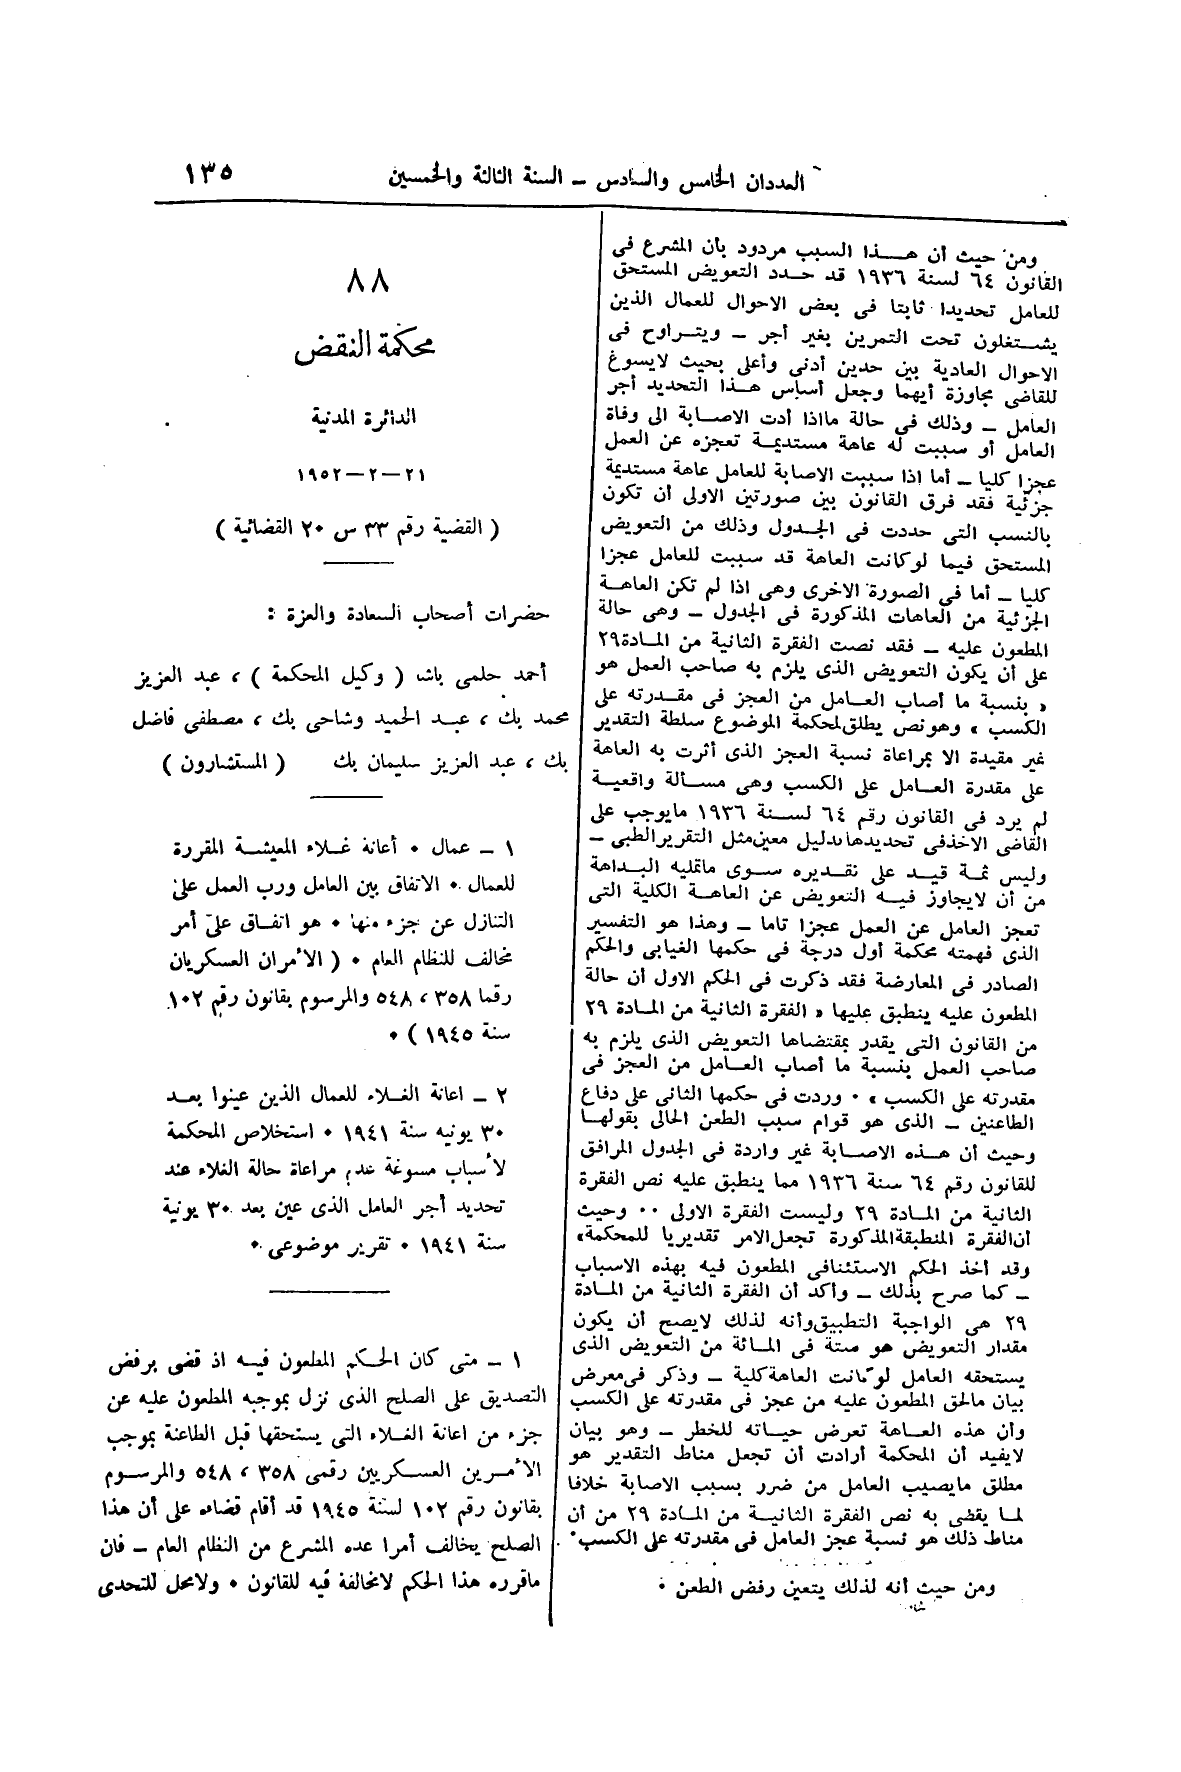 العددان الخامس والسادس – السنة الثالثة والخمسين
١٣٥
ومن حيث أن هــذا السبب مردود بأن المشرع فى
القانون ٦٤ لسنة ١٩٣٦ قد حــدد التعويض المستحق
للعامل تحديدا ثابتا فى بعض الاحوال للعمال الذين
يشــتغلون تحت التمرين بغير أجر – ويتــراوح فى
الاحوال العادية بين حدين أدنى وأعلى بحيث لايسوغ
للقاضى مجاوزة أيهما وجعل أساس هــذا التحديد أجر
العامل – وذلك فى حالة مااذا أدت الاصــابة الى وفاة
العامل أو سببت له عاهة مستديمــة تعجزه عن العمل
عجزا كليا – أما اذا سببت الاصابة للعامل عاهة مستديمة
جزئية فقد فرق القانون بين صورتين الاولى أن تكون
بالنسب التى حددت فى الجــدول وذلك من التعويض
المستحق فيما لوكانت العاهة قد سببت للعامل عجزا
كليا – أما فى الصورة الاخرى وهى اذا لم تكن العاهــة
الجزئية من العاهات المذكورة فى الجدول – وهى حالة
المطعون عليه – فقد نصت الفقرة الثانية من المــادة٢٩
على أن يكون التعويض الذى يلزم به صاحب العمل هو
« بنسبة ما أصاب العــامل من العجز فى مقــدرته على
الكسب » وهونص يطلق لمحكمة الموضوع سلطة التقدير
غير مقيدة الا بمراعاة نسبة العجز الذى أثرت به العاهة
على مقدرة العــامل على الكسب وهى مســألة واقعيــة
لم يرد فى القانون رقم ٦٤ لســنة ١٩٣٦ مايوجب على
القاضى الاخذفى تحديدها بدليل معين مثل التقرير الطبى –
وليس ثمــة قيد على تقــديره ســوى ماتمليه البــداهة
من أن لايجاوز فيــه التعويض عن العاهــة الكلية التى
تعجز العامل عن العمل عجزا تاما – وهذا هو التفسير
الذى فهمته محكمة أول درجة فى حكمها الغيابى والحكم
الصادر فى المعارضة فقد ذكرت فى الحكم الاول أن حالة
المطعون عليه ينطبق عليها « الفقرة الثانية من المــادة ٢٩
من القانون التى يقدر بمقتضاها التعويض الذى يلزم به
صاحب العمل بنسبة ما أصاب العــامل من العجز فى
مقدرته على الكسب » ٠ وردت فى حكمها الثانى على دفاع
الطاعنين – الذى هو قوام سبب الطعن الحالى بقولهــا
وحيث أن هــذه الاصــابة غير واردة فى الجدول المرافق
للقانون رقم ٦٤ سنة ١٩٣٦ مما ينطبق عليه نص الفقرة
الثانية من المــادة ٢٩ وليست الفقرة الاولى ٠٠ وحيث
أن الفقرة المنطبقة المذكورة تجعل الامر تقديريا للمحكمة»
وقد أخذ الحكم الاستئنافى المطعون فيه بهذه الاسباب
– كما صرح بذلك – وأكد أن الفقرة الثانية من المــادة
٢٩ هى الواجبة التطبيق وأنه لذلك لايصح أن يكون
مقدار التعويض هو ستة فى المــائة من التعويض الذى
يستحقه العامل لوكانت العاهة كلية – وذكر فى معرض
بيان مالحق المطعون عليه من عجز فى مقدرته على الكسب
وأن هذه العــاهة تعرض حيــاته للخطر – وهو بيان
لايفيد أن المحكمة أرادت أن تجعل مناط التقدير هو
مطلق مايصيب العامل من ضرر بسبب الاصابة خلافا
لمــا يقضى به نص الفقرة الثانيــة من المــادة ٢٩ من أن
مناط ذلك هو نسبة عجز العامل فى مقدرته على الكسب ٠
ومن حيث أنه لذلك يتعين رفض الطعن ٠
٨٨
محكمة النقض
الدائرة المدنية
٢١–٢–١٩٥٢
( القضية رقم ٣٣ س ٢٠ القضائية )
حضرات أصحاب السعادة والعزة :
أحمد حلمى باشا ( وكيل المحكمة ) ، عبد العزيز
محمد بك ، عبــد الحميد وشاحى بك ، مصطفى فاضل
بك ، عبد العزيز سليمان بك ( المستشارون )
١ – عمال ٠ أعانة غــلاء المعيشــة المقررة
للعمال ٠ الاتفاق بين العامل ورب العمل على
التنازل عن جزء منها ٠ هو اتفــاق على أمر
مخالف للنظام العام ٠ ( الأمران العسكريان
رقما ٣٥٨ ، ٥٤٨ والمرسوم بقانون رقم ١٠٢
سنة ١٩٤٥ ) ٠
٢ – اعانة الغــلاء للعمال الذين عينوا بعــد
٣٠ يونيه سنة ١٩٤١ ٠ استخلاص المحكمة
لأسباب مسوغة عدم مراعاة حالة الغلاء عند
تحديد أجر العامل الذى عين بعد ٣٠ يونية
سنة ١٩٤١ ٠ تقرير موضوعى ٠
١ – متى كان الحــكم المطعون فيــه اذ قضى برفض
التصديق على الصلح الذى نزل بموجبه المطعون عليه عن
جزء من اعانة الغــلاء التى يستحقها قبل الطاعنة بموجب
الأمــرين العسكريين رقمى ٣٥٨ ، ٥٤٨ والمرســوم
بقانون رقم ١٠٢ لسنة ١٩٤٥ قد أقام قضاءه على أن هذا
الصلح يخالف أمرا عده المشرع من النظام العام – فان
ماقرره هذا الحكم لامخالفة فيه للقانون ٠ ولامحل للتحدى